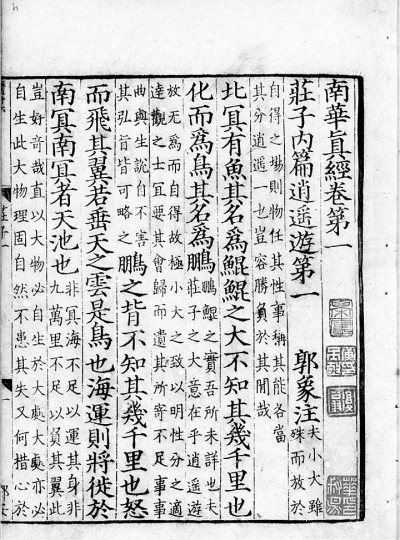 南華眞經卷第一
莊子内篇逍遥遊第一 郭象注
夫小大雖
殊而放於
自得之場則物任其性事稱其能各當
其分逍遥一也豈容勝負於其閒哉
北冥有魚其名爲鯤鯤之大不知其幾千里也
化而爲鳥其名爲鵬
鵬鯤之實吾所未詳也夫
莊子之大意在乎逍遥遊
放无爲而自得故極小大之致以明性分之適
達觀之士宜要其會歸而遺其所寄不足事事
曲與生說自不害
其弘旨皆可略之
鵬之背不知其幾千里也怒
而飛其翼若垂天之雲是鳥也海運則將徙於
南冥南冥者天池也
非冥海不足以運其身非
九萬里不足以負其翼此
豈好奇哉直以大物必自生於大處大處亦必
自生此大物理固自然不患其失又何措心於